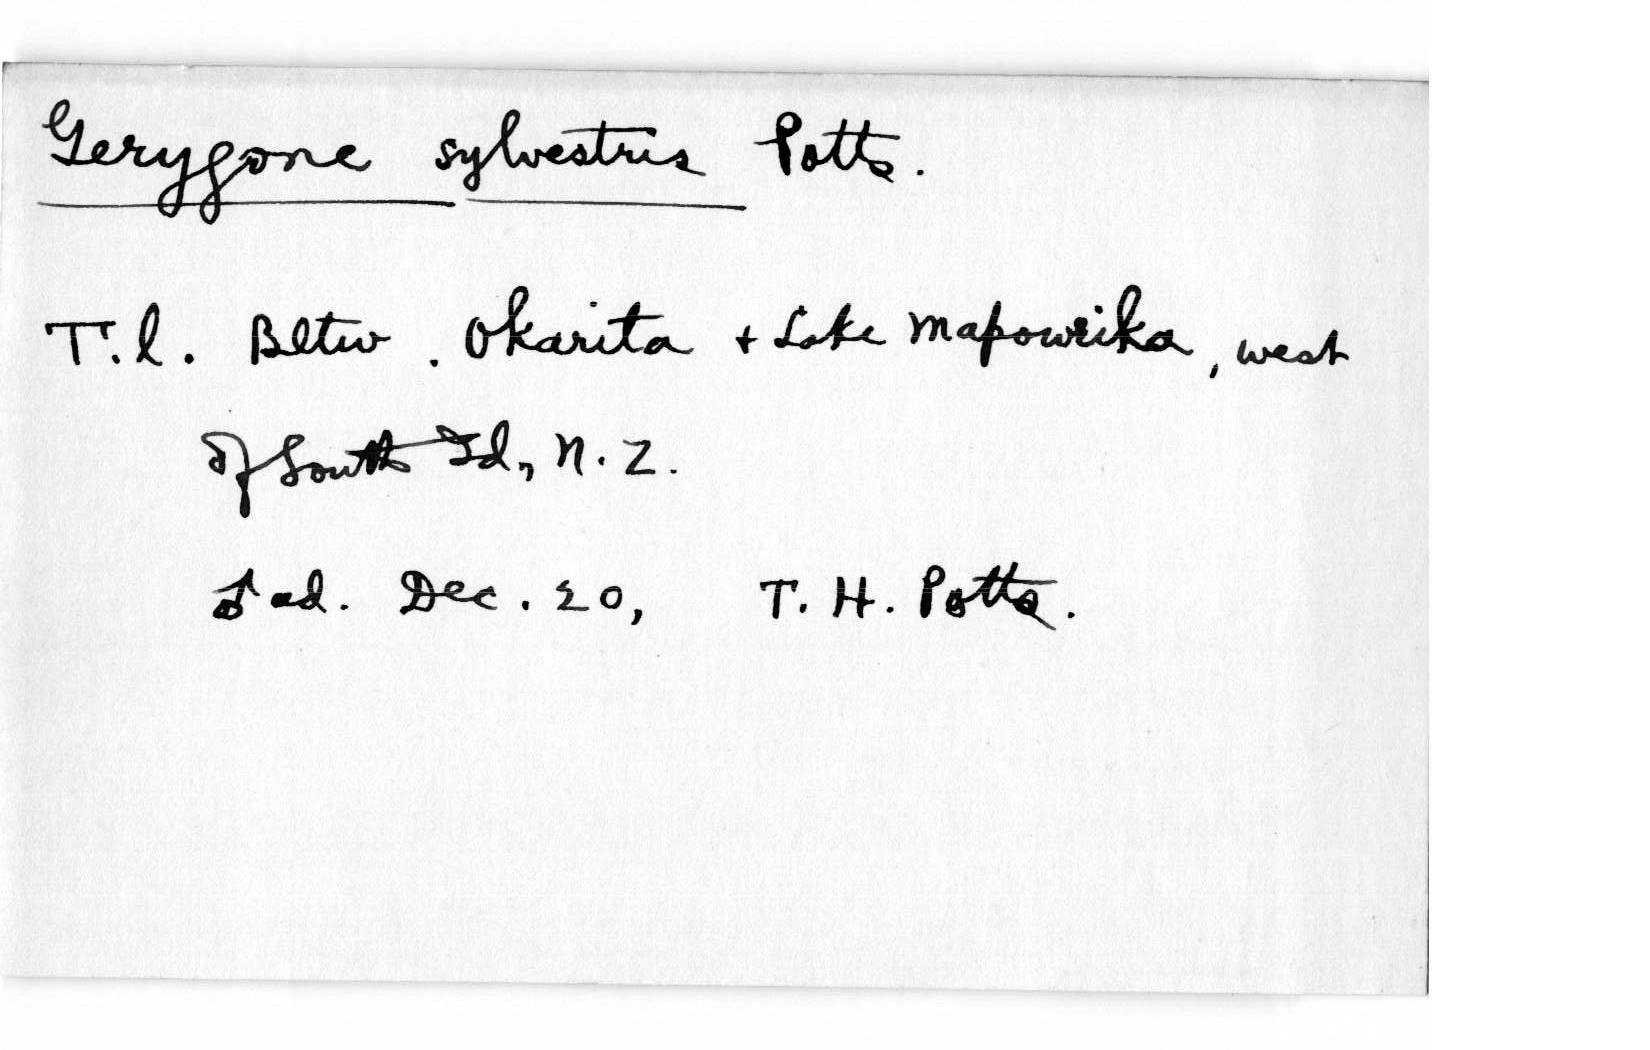 Gerygone sylvestris Potts.
T.l. Betw. Okarita + Lake Mapowrika, west
of South Id, N.Z.
♂ ad. Dec. 20, T. H. Potts.